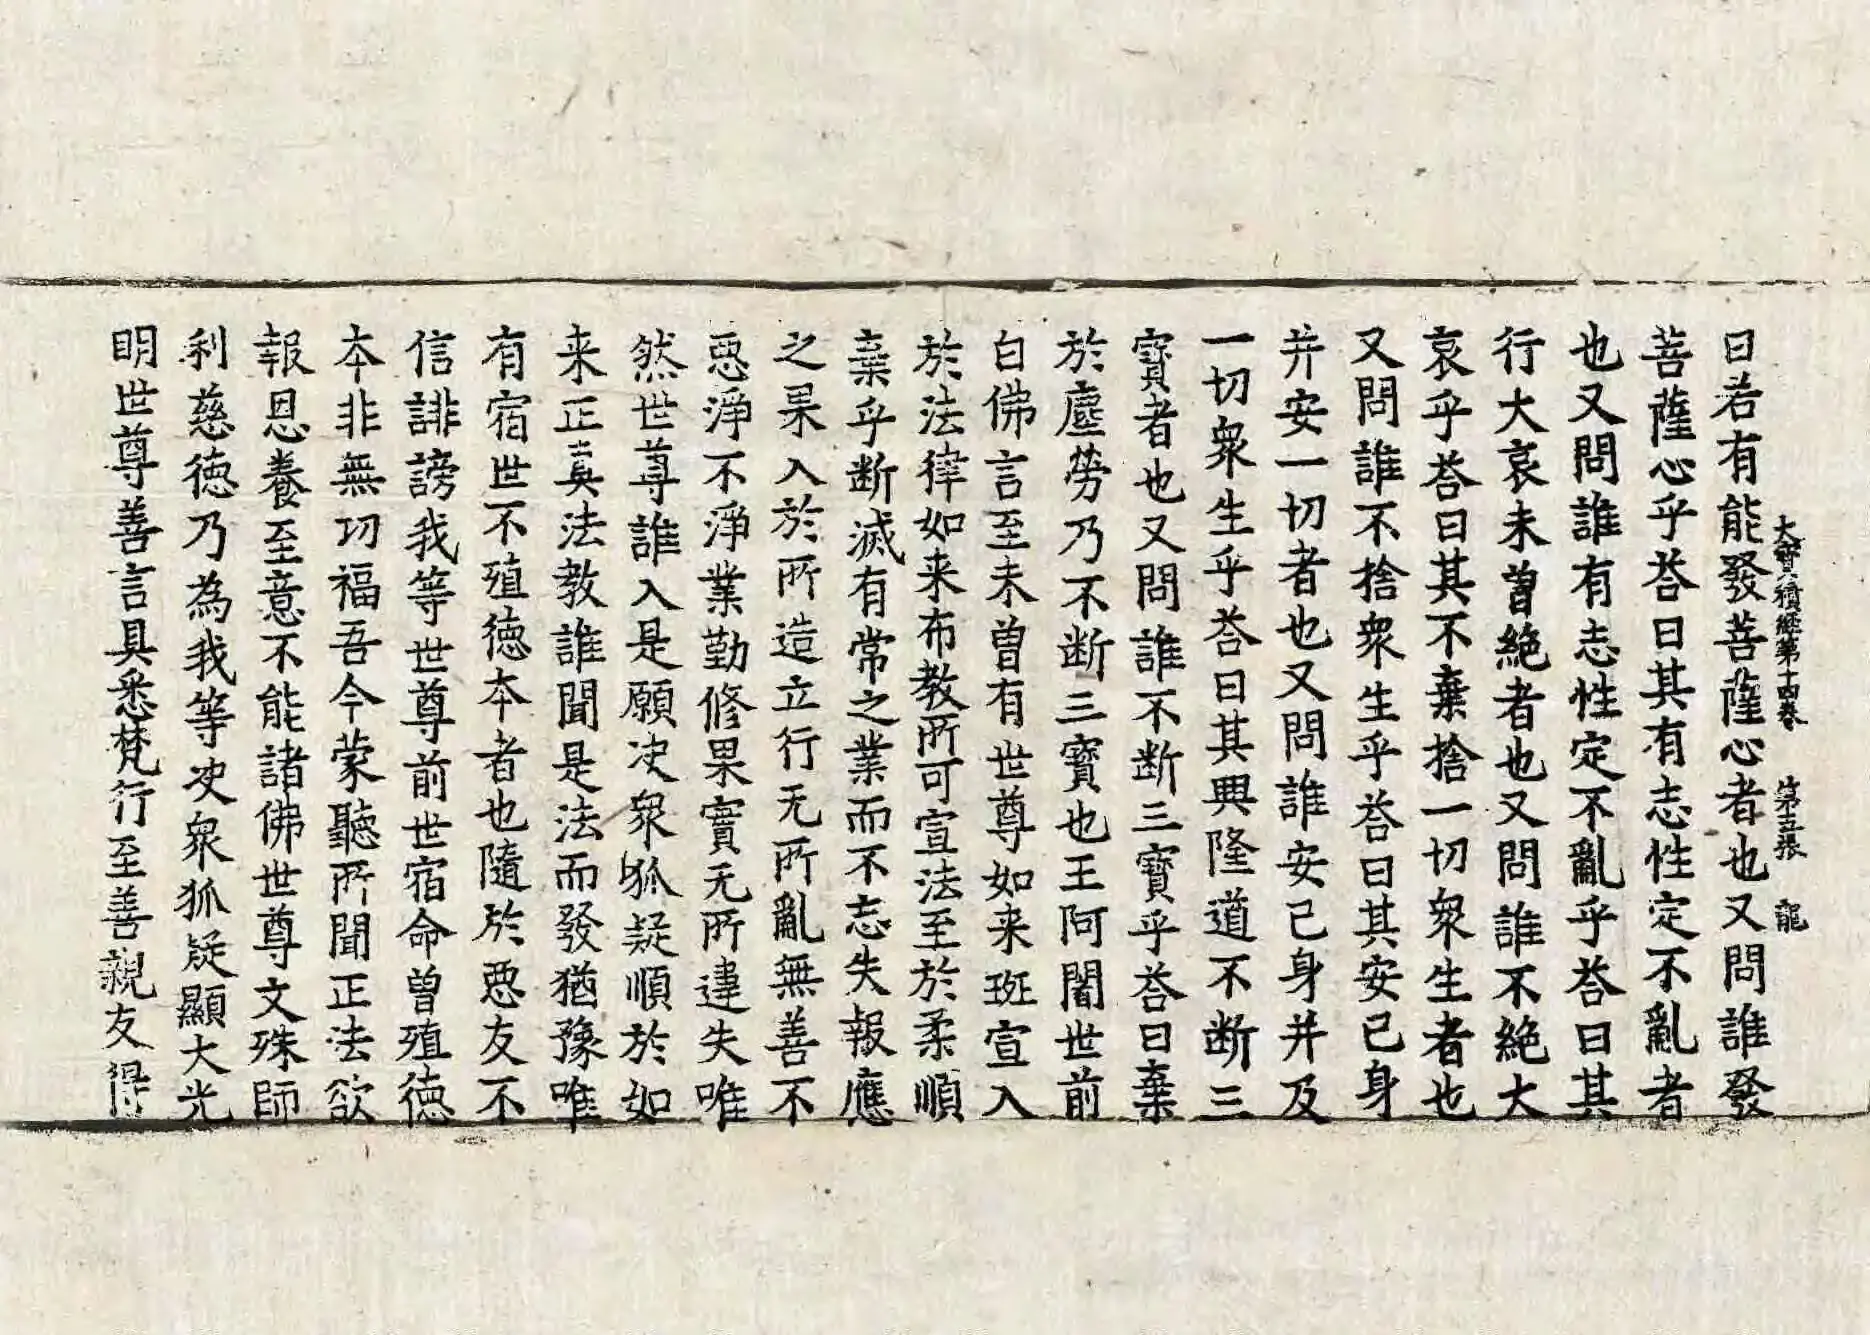 大寶積經第十四卷 第五張 龍
曰若有能發菩薩心者也又問誰發
菩薩心乎荅曰其有志性定不亂者
也又問誰有志性定不亂乎荅曰其
行大哀未曽絶者也又問誰不絶大
哀乎荅曰其不棄捨一切衆生者也
又問誰不捨衆生乎荅曰其安己身
并安一切者也又問誰安己身并及
一切衆生乎荅曰其興隆道不断三
寳者也又問誰不断三寳乎荅曰棄
於塵勞乃不断三寳也王阿闍世前
白佛言至未曽有世尊如来班宣入
於法律如来布教所可宣法至於柔順
棄乎断滅有常之業而不忘失報應
之果入於所造立行无所亂無善不
惡淨不淨業勤修果實无所違失唯
然世尊誰入是願决衆狐疑順於如
来正真法教誰聞是法而發猶豫唯
有宿世不殖徳本者也隨於惡友不
信誹謗我等世尊前世宿命曽殖徳
本非無功福吾今蒙聽所聞正法欲
報恩養至意不能諸佛世尊文殊師
利慈徳乃為我等决衆狐疑顯大光
明世尊善言具悉梵行至善親友得